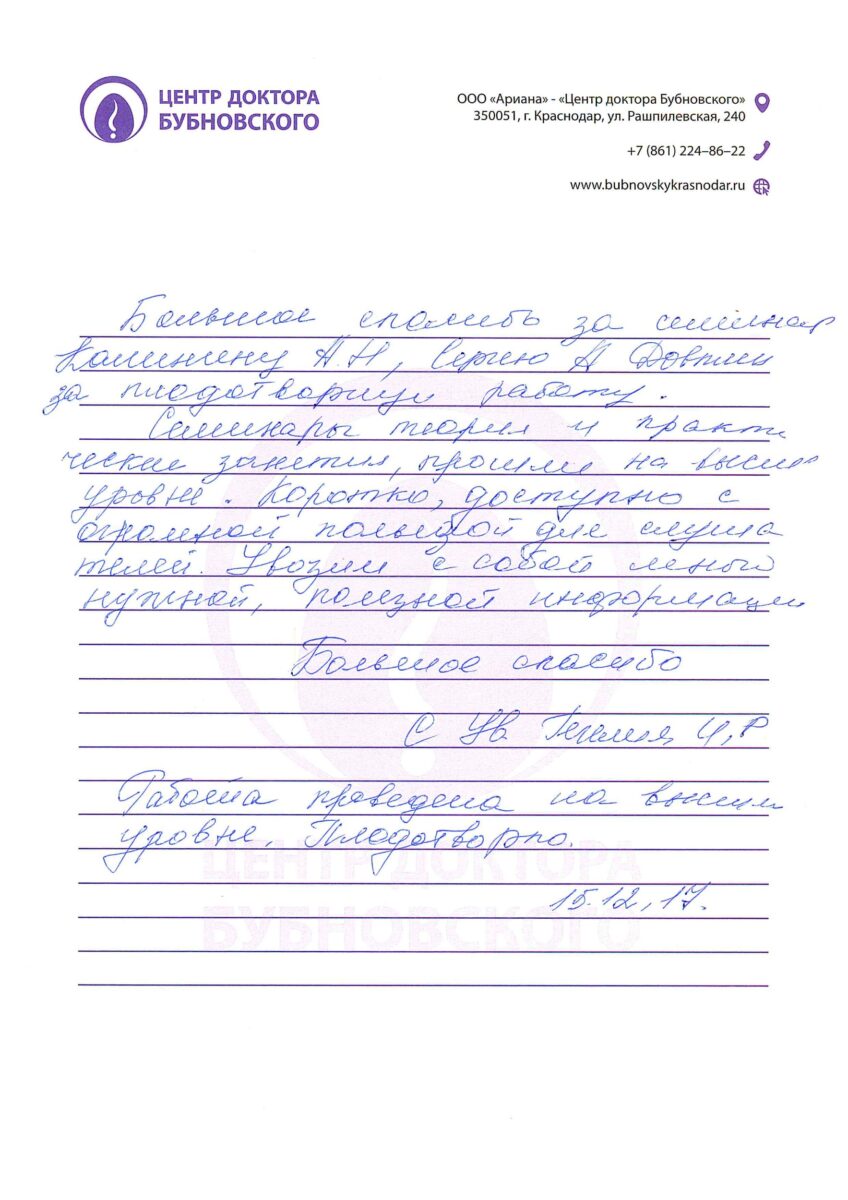 ЦЕНТР ДОКТОРА
БУБНОВСКОГО
ООО «Ариана» - «Центр доктора Бубновского»
350051, г. Краснодар, ул. Рашпилевская, 240
+7 (861) 224–86–22
www.bubnovskykrasnodar.ru
Большое спасибо за семинар
Калинину А.Н, Сергею А
за работу.
Семинары теория и практи
ческие занятия, прошли на
уровне. Коротко, доступно с
огромной пользой для слуша
телей. Увозим с собой много
нужной, полезной информации
Большое спасибо
С Ув
Работа проведена на высшем
уровне. Плодотворно.
15.12.17.
ЦЕНТР ДОКТОРА
БУБНОВСКОГО